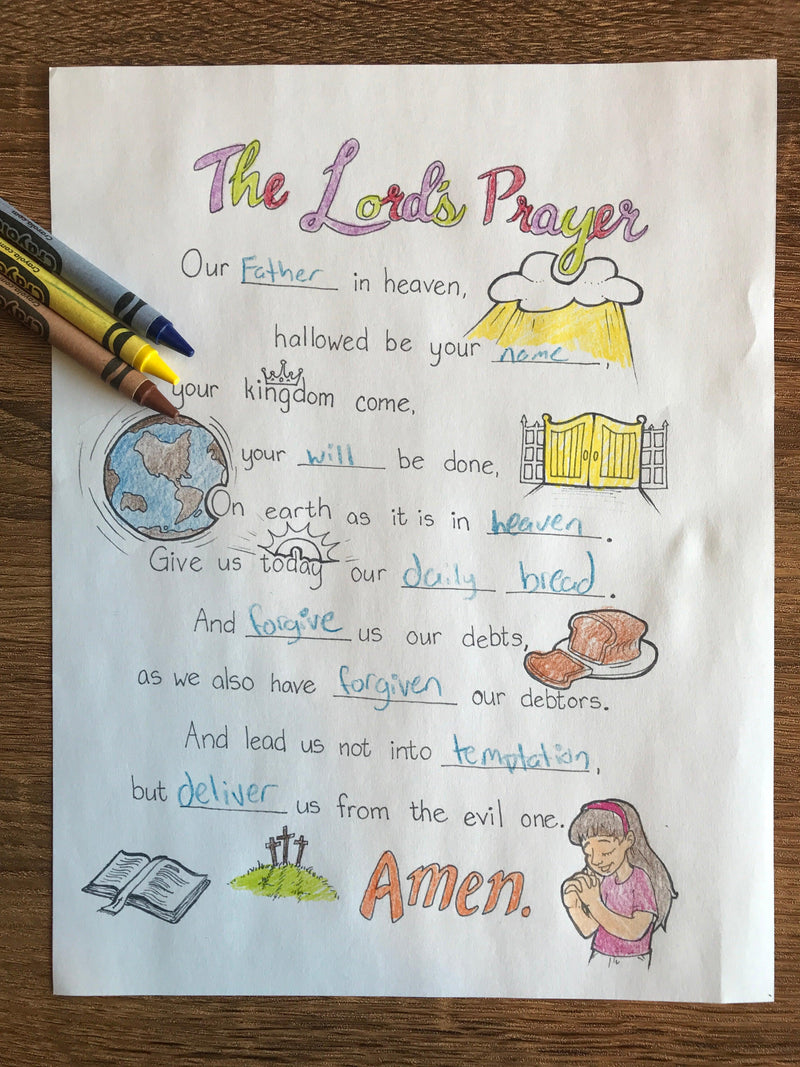 The Lord's Prayer
Our Father in heaven,
hallowed be your name,
your kingdom come,
your will be done,
On earth as it is in heaven.
Give us today our daily bread.
And forgive us our debts,
as we also have forgiven our debtors.
And lead us not into temptation,
but deliver us from the evil one.
Amen.
Crayola
Crayola.com
Crayola
Crayola.com
Crayola